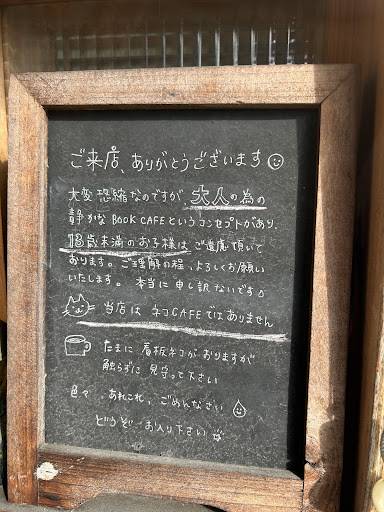 ご来店、ありがとうございます
大変恐縮なのですが、大人の為の
静かなBOOK CAFEというコンセプトがあり、
13歳未満のお子様はご遠慮頂いて
おります。ご理解の程、よろしくお願い
いたします。本当に申し訳ないです
当店はネコCAFEではありません
たまに看板ネコがおりますが
触らずに見守って下さい
色々あれこれ、ごめんなさい
どうぞお入り下さい